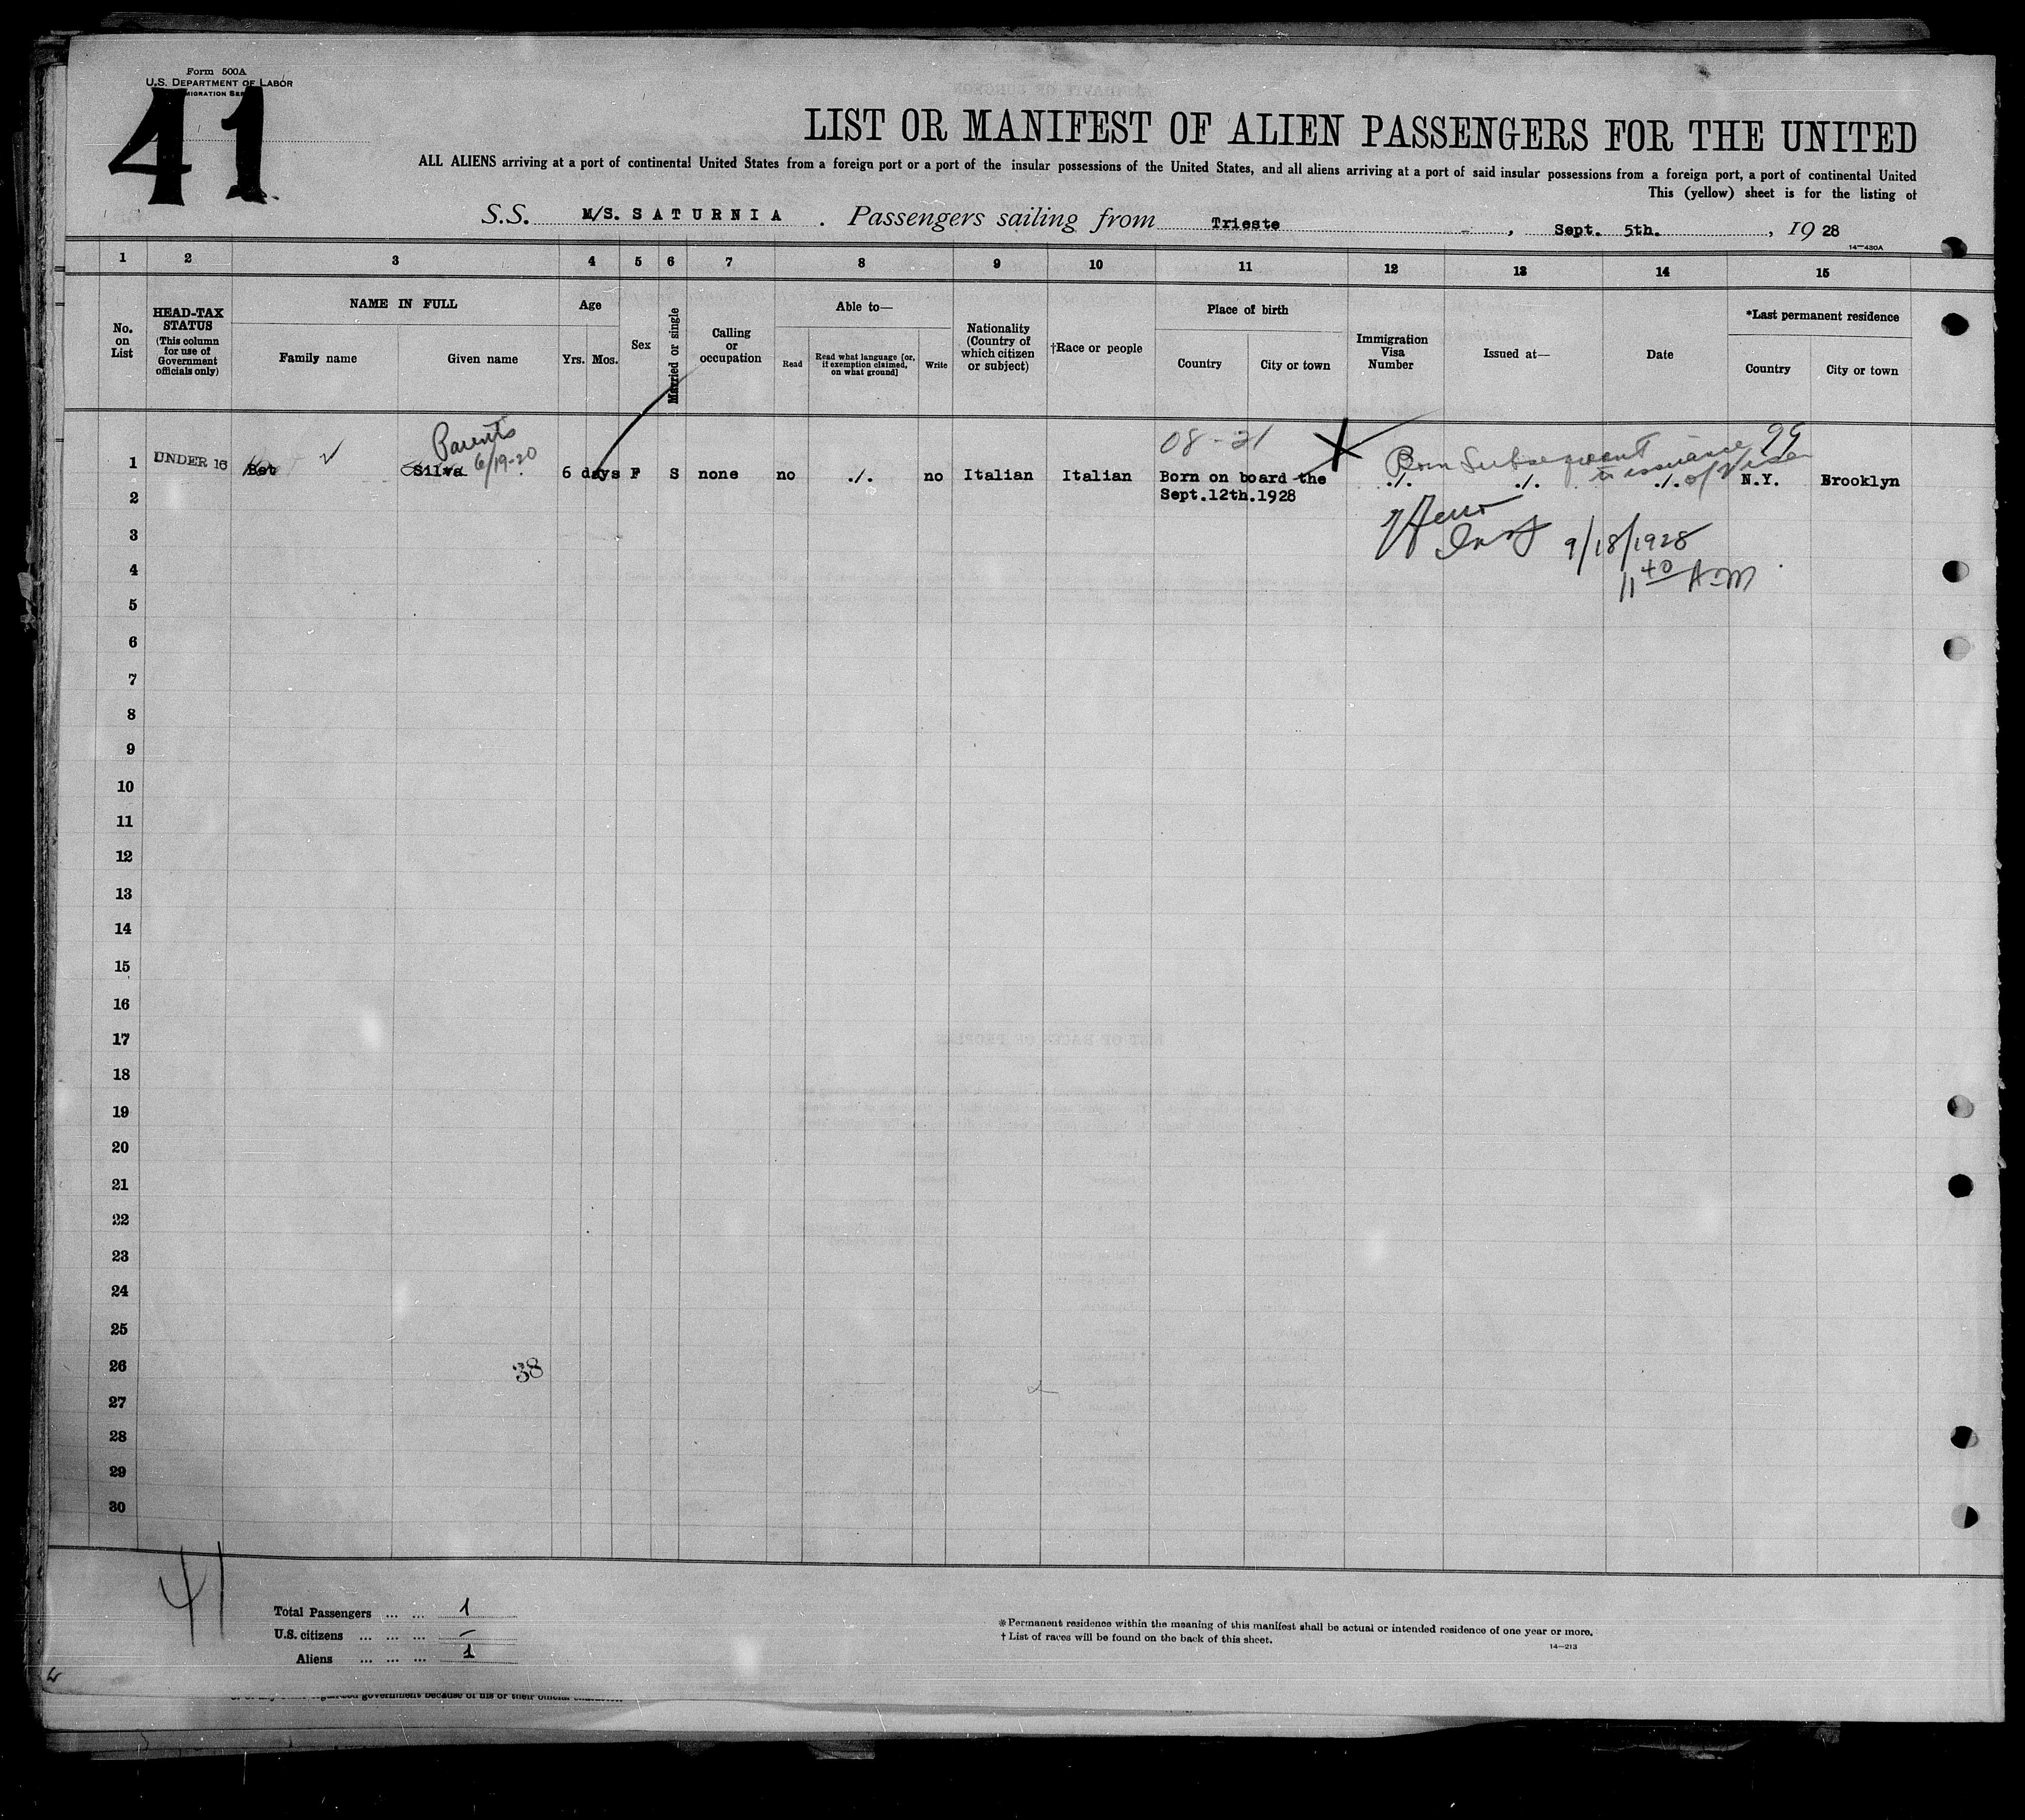 Form 500A
U.S. DEPARTMENT OF LABOR
41
LIST OR MANIFEST OF ALIEN PASSENGERS FOR THE UNITED
ALL ALIENS arriving at a port of continental United States from a foreign port or a port of the insular possessions of the United States, and all aliens arriving at a port of said insular possessions from a foreign port, a port of continental United
This (yellow) sheet is for the listing of
S.S. M/S. SATURNIA . Passengers sailing from Trieste , Sept. 5th. , 19 28
14—430A
1 2 3 4 5 6 7 8 9 10 11 12 13 14 15
No. on List
HEAD-TAX STATUS (This column for use of Government officials only)
NAME IN FULL
Family name Given name
Age
Yrs. Mos.
Sex
Married or single
Calling or occupation
Able to—
Read Read what language [or, if exemption claimed, on what ground] Write
Nationality (Country of which citizen or subject)
†Race or people
Place of birth
Country City or town
Immigration Visa Number
Issued at—
Date
*Last permanent residence
Country City or town
Parents
6/19-20
08-21
99
Born Subsequent
to issuance of Visa
1 UNDER 16 Set Silva 6 days F S none no ./. no Italian Italian Born on board the ./. ./. ./. N.Y. Brooklyn
2 Sept.12th.1928
3 9/18/1928
4 11 40 A M
5
6
7
8
9
10
11
12
13
14
15
16
17
18
19
20
21
22
23
24
25
26 38
27
28
29
30
41
Total Passengers ... ... 1
U.S. citizens ... ... ... –
Aliens ... ... ... 1
*Permanent residence within the meaning of this manifest shall be actual or intended residence of one year or more.
† List of races will be found on the back of this sheet.
14—213